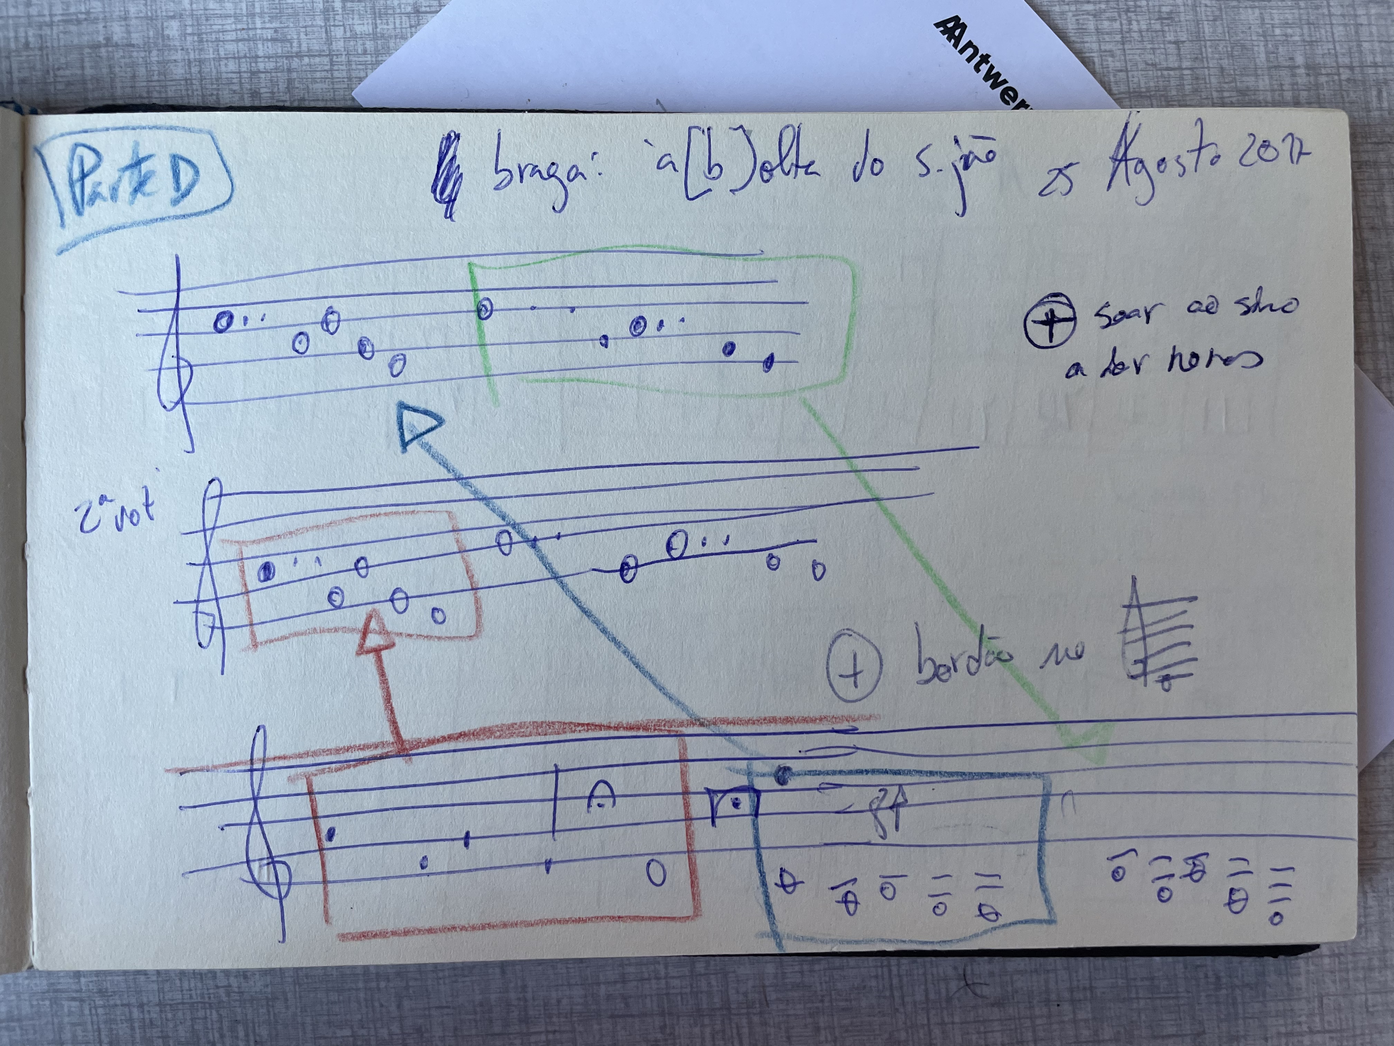 AAntwer
Parte D
braga: 'a[b]olta do s. jão 25 Agosto 2017
⊕ soar ao sino
2ª vot
⊕ bordão no